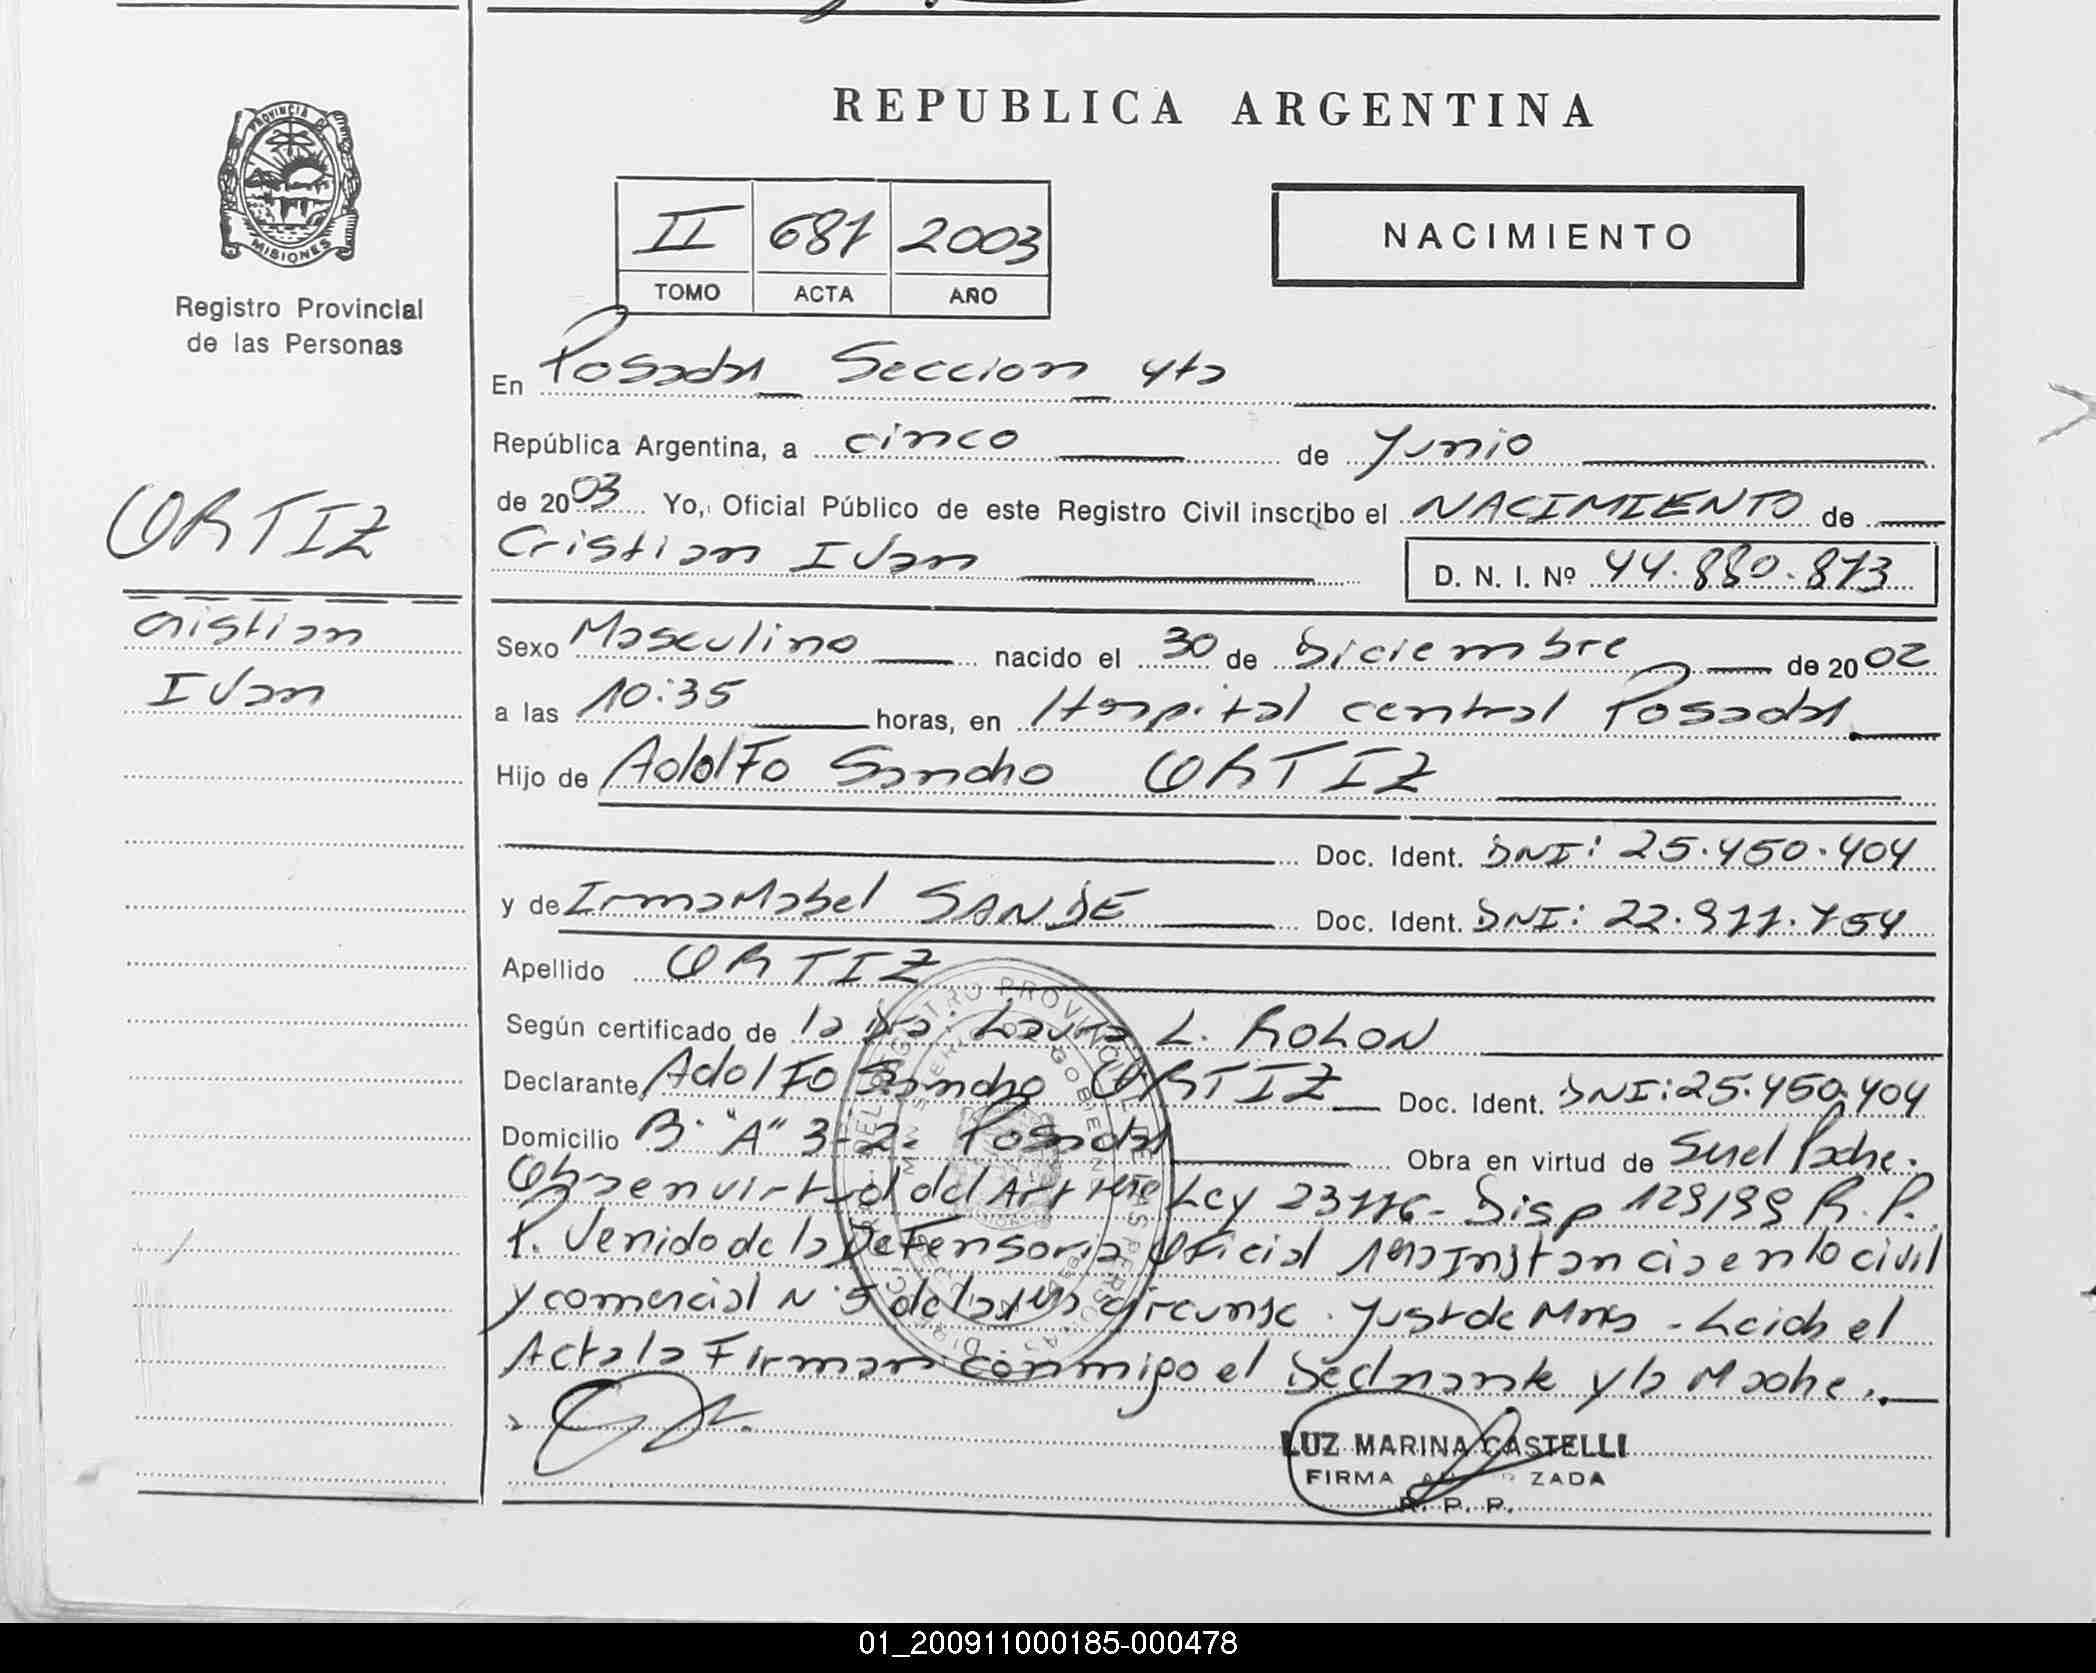 REPUBLICA ARGENTINA
PROVINCIA DE
MISIONES
Registro Provincial
de las Personas
II 681 2003
TOMO ACTA AÑO
NACIMIENTO
En Posadas Seccion 4ta
República Argentina, a cinco de Junio
de 2003 Yo, Oficial Público de este Registro Civil inscribo el NACIMIENTO de
Cristian Ivan D. N. I. Nº 44.880.873
ORTIZ
Cristian
Ivan
Sexo Masculino nacido el 30 de Diciembre de 2002
a las 10:35 horas, en Hospital central Posadas
Hijo de Adolfo Sandro ORTIZ
Doc. Ident. DNI: 25.450.404
y de Irma Mabel SANDE Doc. Ident. DNI: 22.911.754
Apellido ORTIZ
Según certificado de la Dra. Laura L. ROLON
Declarante Adolfo Sandro ORTIZ Doc. Ident. DNI: 25.450.404
Domicilio B. "A" 3-2. Posadas Obra en virtud de Ser el Padre.
Obra en virtud del Art Ley 23776 - Disp 129/99 R. P.
P. Venido de la Defensoria Oficial 1era Instancia en lo civil
y comercial N. 5 de la 1era circunsc. Just de Mnes - Leida el
Acta la Firman conmigo el Declarante y la Madre.
LUZ MARINA CASTELLI
FIRMA AUTORIZADA
R. P. P.
01_200911000185-000478